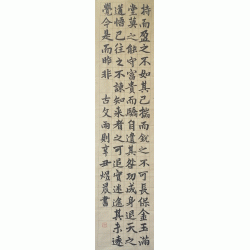 持而盈之不如其已揣而銳之不可長保金玉滿
堂莫之能守富貴而驕自遺其咎功成身退天之
道悟已往之不諫知來者之可追實迷途其未遠
覺今是而昨非 古文兩則辛丑煜晨書